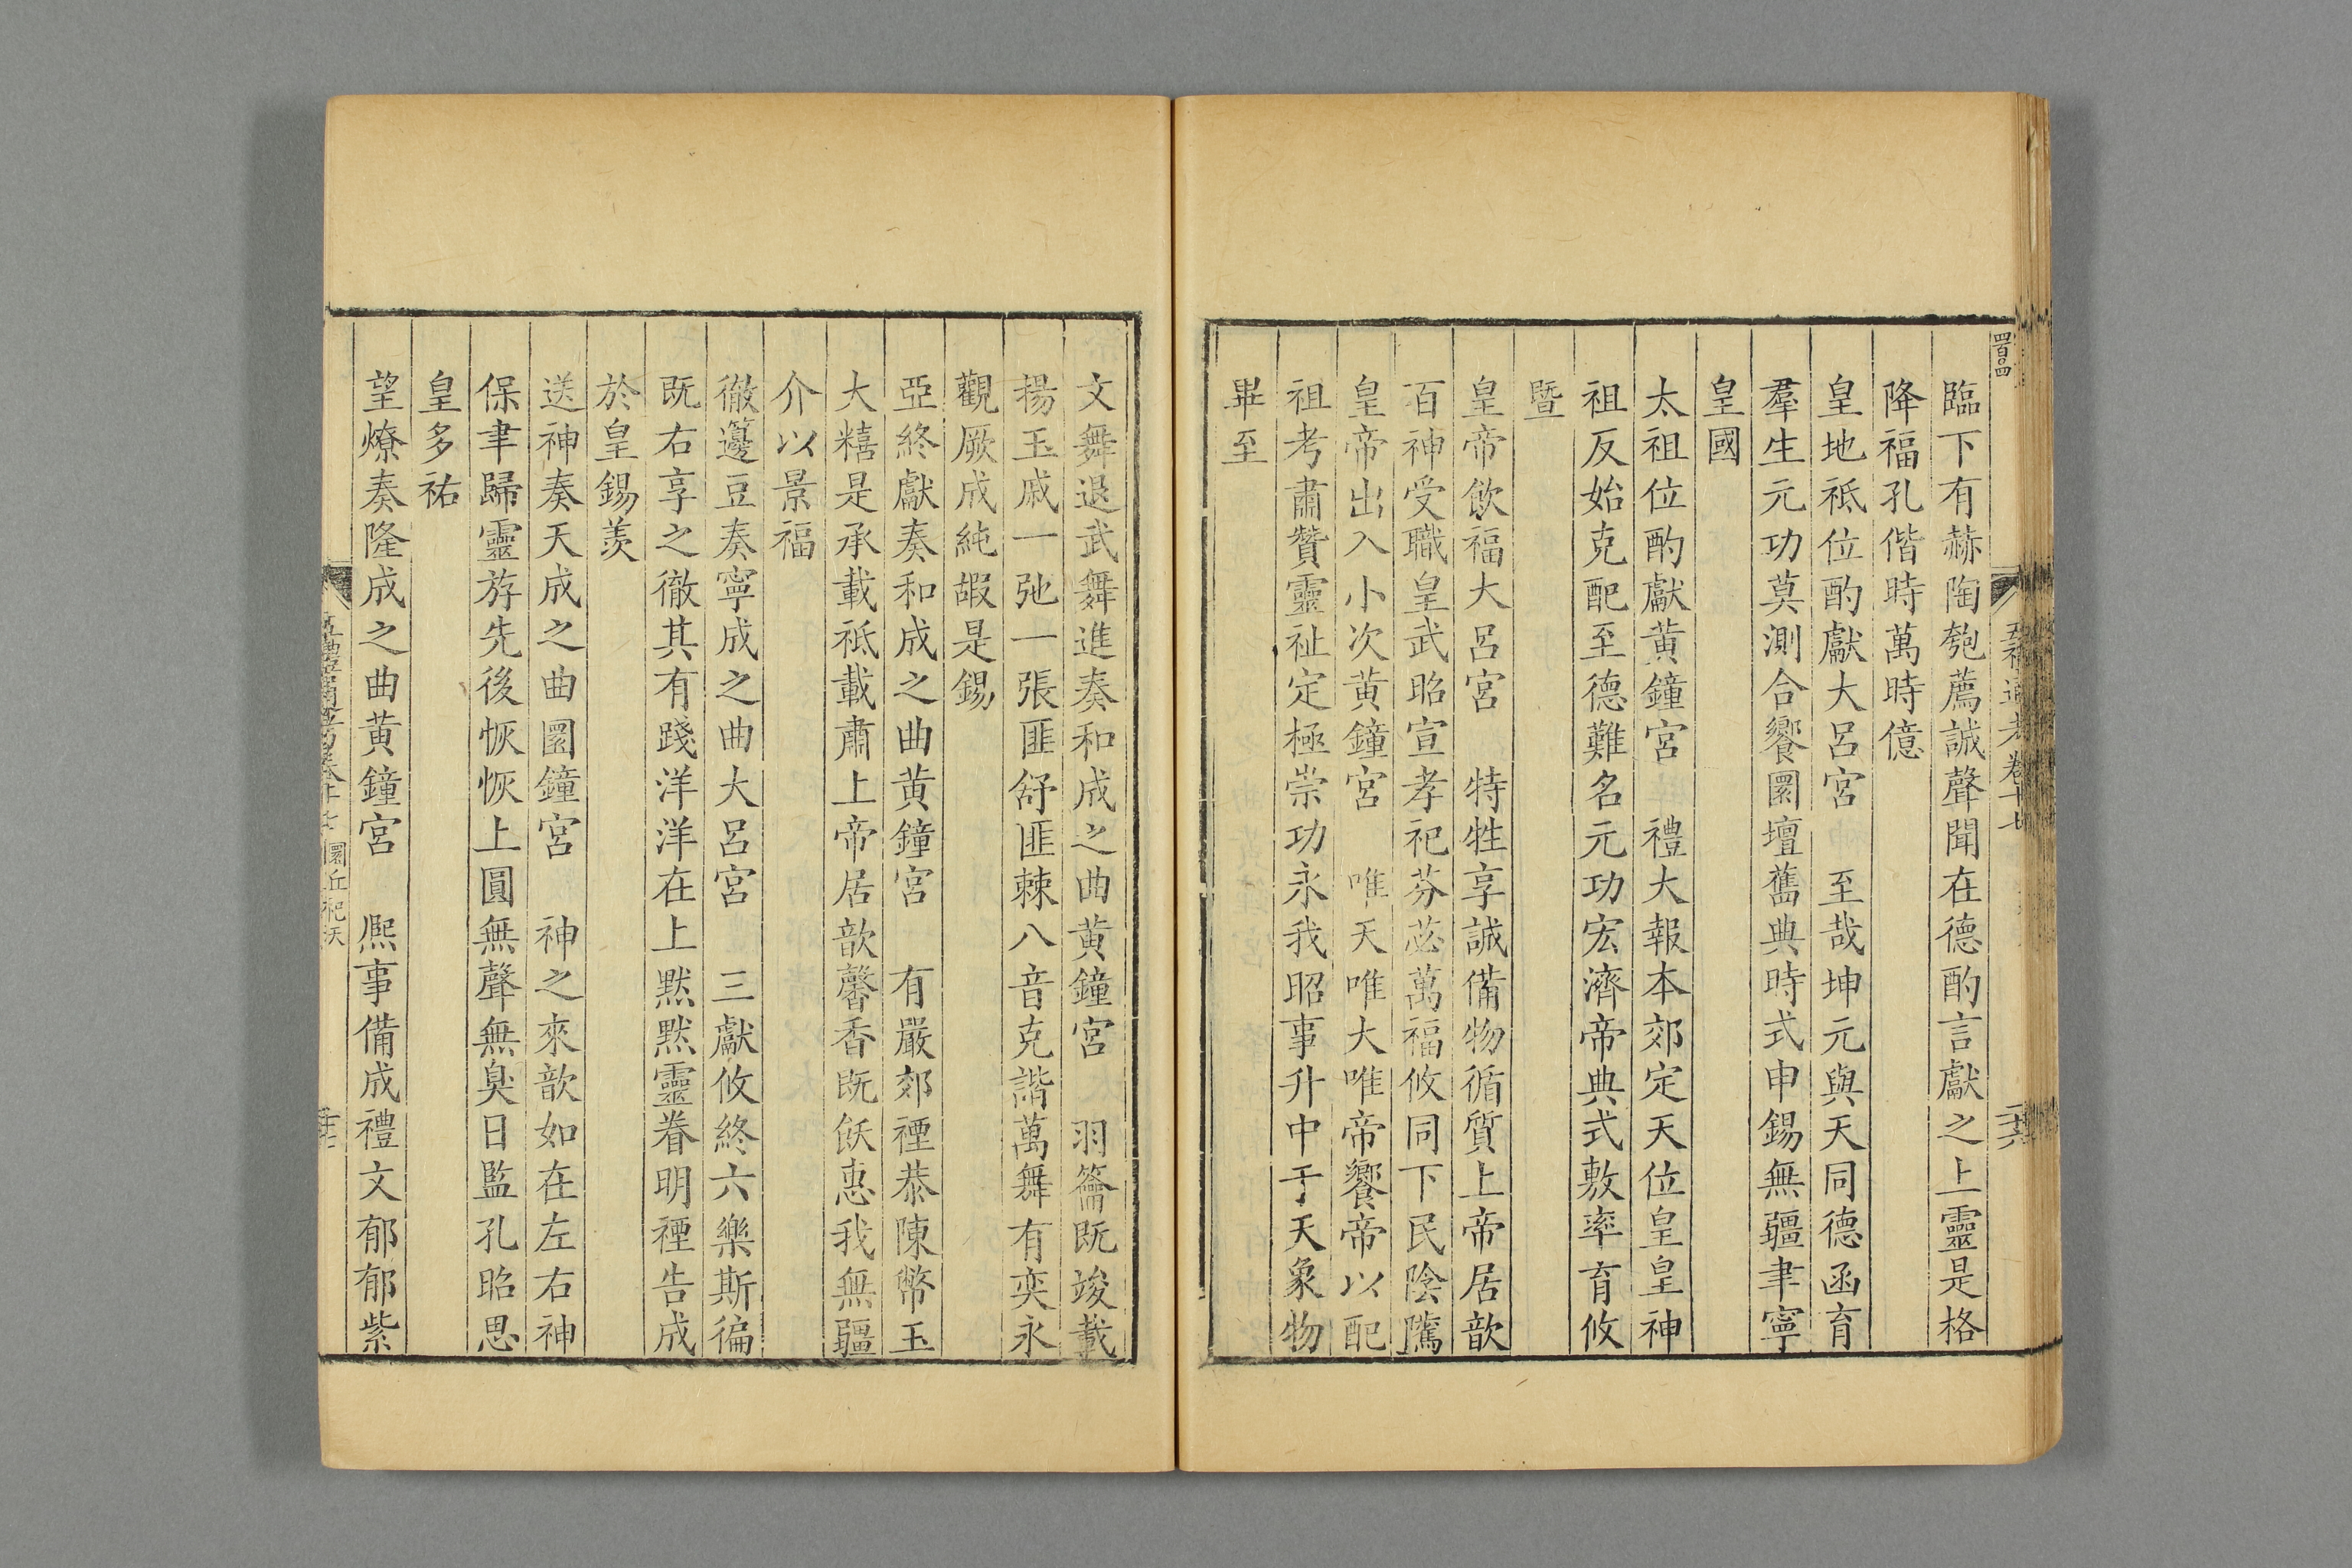 臨下有赫陶匏薦誠聲聞在德酌言獻之上靈是格
降福孔偕時萬時億
皇地祇位酌獻大呂宮　至哉坤元與天同德函育
羣生元功莫測合饗圜壇舊典時式申錫無疆聿寧
皇國
太祖位酌獻黃鐘宮　禮大報本郊定天位皇皇神
祖反始克配至德難名元功宏濟帝典式敷率育攸
暨
皇帝飲福大呂宮　特牲享誠備物循質上帝居歆
百神受職皇武昭宣孝祀芬苾萬福攸同下民陰騭
皇帝出入小次黃鐘宮　唯天唯大唯帝饗帝以配
祖考肅贊靈祉定極崇功永我昭事升中于天象物
畢至
文舞退武舞進奏和成之曲黃鐘宮　羽籥既竣載
揚玉戚一弛一張匪舒匪棘八音克諧萬舞有奕永
觀厥成純嘏是錫
亞終獻奏和成之曲黃鐘宮　有嚴郊禋恭陳幣玉
大糦是承載祗載肅上帝居歆馨香既飫惠我無疆
介以景福
徹籩豆奏寧成之曲大呂宮　三獻攸終六樂斯徧
既右享之徹其有踐洋洋在上默默靈眷明禋告成
於皇錫羨
送神奏天成之曲圜鐘宮　神之來歆如在左右神
保聿歸靈斿先後恢恢上圓無聲無臭日監孔昭思
皇多祐
望燎奏隆成之曲黃鐘宮　熙事備成禮文郁郁紫
圜丘祀天